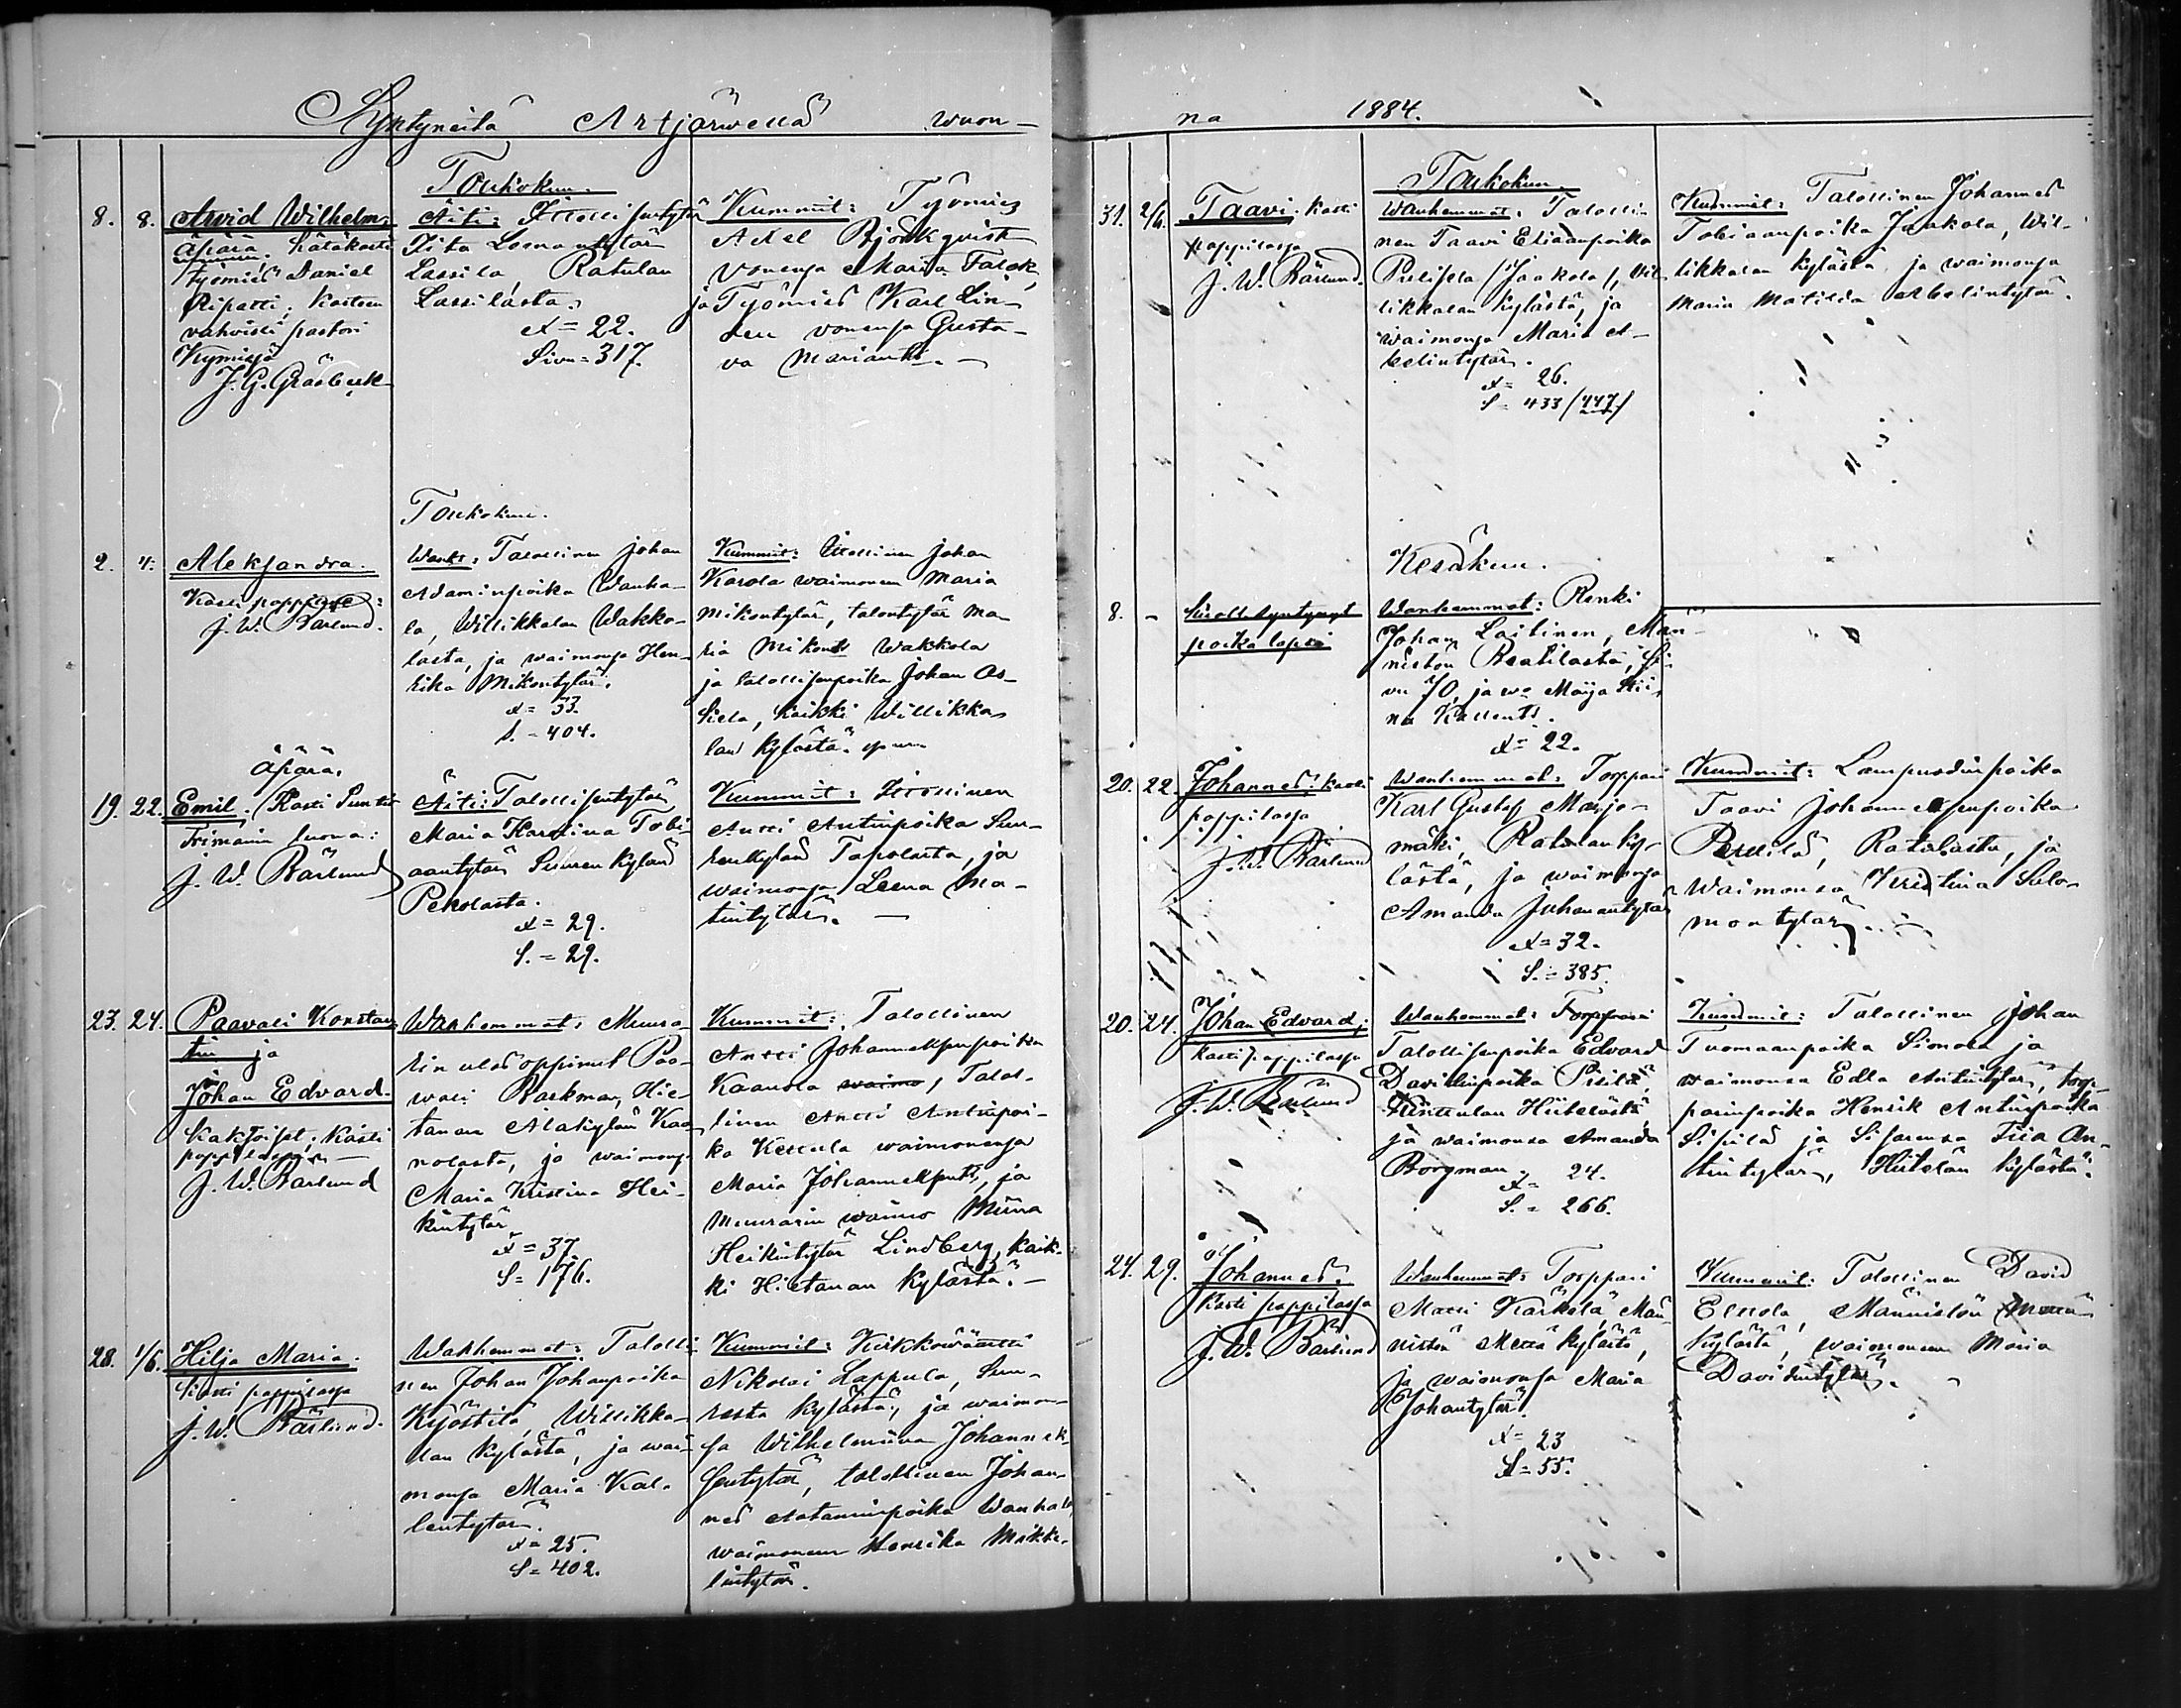 Syntyneitä Artjärwellä wuon-
Toukokuu.
8. 8. Arvid Wilhelm:
Äpärä. hätäkasti
työmies Daniel
Ripatti; kasteen
vahvisti pastori
Kymissä
J. G. Gråsbeck
Äiti: Itsellisentytär
Iita Leenantytär
Lassila, Ratulan
Lassilasta.
Ä = 22.
Sivu = 317.
Kummit: Työmies
Axel Björkqvist
vonensa Maria Falck,
ja Työmies Karl Lin-
den vonensa Gusta-
va Mariant. -
Toukokuu.
2. 4. Aleksandra.
Kasti pappilassa:
J. W. Bärlund.
Wanh: Talollinen Johan
Adaminpoika Wanha-
la, Willikkalan Wakko-
lasta, ja waimonsa Hen-
rika Mikontytär.
Ä = 33.
S. = 404.
Kummit: Itsellinen Johan
Karola waimonen Maria
Mikontytär, talontytär Ma-
ria Mikont Wakkola
ja talollisenpoika Johan
kaikki Willikka-
lan kylästä.
Äpärä.
19. 22. Emil. Kasti
luona:
J. W. Bärlund
Äiti: Talollisentytär
Maria Karolina Tobi-
aantytär Suuren kylän
Pekolasta.
Ä = 29.
S. = 29.
Kummit: Itsellinen
Antti Antinpoika Suu-
renkylän Tapolasta, ja
waimonsa Leena Ma-
tintytär. -
23. 24. Paavali Konstan-
tin ja
Johan Edvard.
Kaksoiset. Kasti
pappilassa. -
J. W. Bärlund
Wanhemmat: Muura-
rin ulosoppinut Paa-
wali Backman, Hie-
tanan Alakylän Kaa-
nolasta, ja waimonsa
Maria Kristina Hei-
kintytär
Ä = 37.
S = 176.
Kummit: Talollinen
Antti Johanneksenpoika
Kaanola waimo, Talol-
linen Antti Antinpoi-
ka Kettula waimonensa
Maria Johanneksent, ja
Muurarin waimo Miina
Heikintytär Lindberg, kaik-
ki Hietanan kylästä. -
28. 1/6. Hilja Maria.
Kasti pappilassa
J. W. Bärlund.
Wanhemmat: Talolli-
nen Johan Johanpoika
Kyöstilä, Willikka-
lan kylästä, ja wai-
monsa Maria Kal-
lentytär.
Ä = 25.
S = 402.
Kummit:
Nikolai Lappula, Suu-
resta kylästä, ja waimon-
sa Wilhelmiina Johannek-
sentytär, talollinen Johan-
nes Aataminpoika Wanhala,
waimoneen Henrika Mikke-
lintytär.
na 1884.
Toukokuu.
31. 2/6. Taavi. Kasti
pappilassa
J. W. Bärlund.
Wanhemmat: Talolli-
nen Taavi Eliaanpoika
(Jaakola), Wil-
likkalan kylästä, ja
waimonsa Maria A-
belintytär.
Ä = 26.
S = 433 (447)
Kummit: Talollinen Johannes
Tobiaanpoika Jaakola, Wil-
likkalan kylästä ja waimonsa
Maria Matilda Abelintytär.
Kesäkuu.
8. - Kuoll. syntynyt
poika lapsi
Wanhemmat: Renki
Johan Laitinen, Män-
nistön Beatilasta, Si-
vu 70, ja wo Maija Stii-
na Kallent.
Ä = 22.
20. 22. Johannes: Kasti
pappilassa
J. W. Bärlund
Wanhemmat: Torppari
Karl Gustaf Marjo-
mäki, Ratulan ky-
lästä, ja waimonsa
Amanda Johanantytär
Ä = 32.
S. = 385.
Kummit: Lampuodinpoika
Taavi Johanneksenpoika
Ratulasta, ja
Waimonsa Kristina Salo-
montytär. -
20. 24. Johan Edvard;
Kasti pappilassa
J. W. Bärlund
Wanhemmat: Torppari
Talollisenpoika Edvard
Davidinpoika
Hiitelästä
ja waimonsa Amanda
Borgman.
Ä = 24.
S. = 266.
Kummit: Talollinen Johan
Tuomaanpoika Simola ja
waimonsa Edla Antintytär, torp-
parinpoika Henrik Antinpoika
ja Sisarensa Tiia An-
tintytär, Hiitelän kylästä.
24. 29. Johannes.
Kasti pappilassa
J. W. Bärlund
Wanhemmat: Torppari
Matti Kärkelä, Män-
nistön Mettä kylästä,
ja waimonsa Maria
Johantytär.
Ä = 23
S = 55.
Kummit: Talollinen David
Männistön Mettä-
kylästä, waimoneen Maria
Davidintytär.